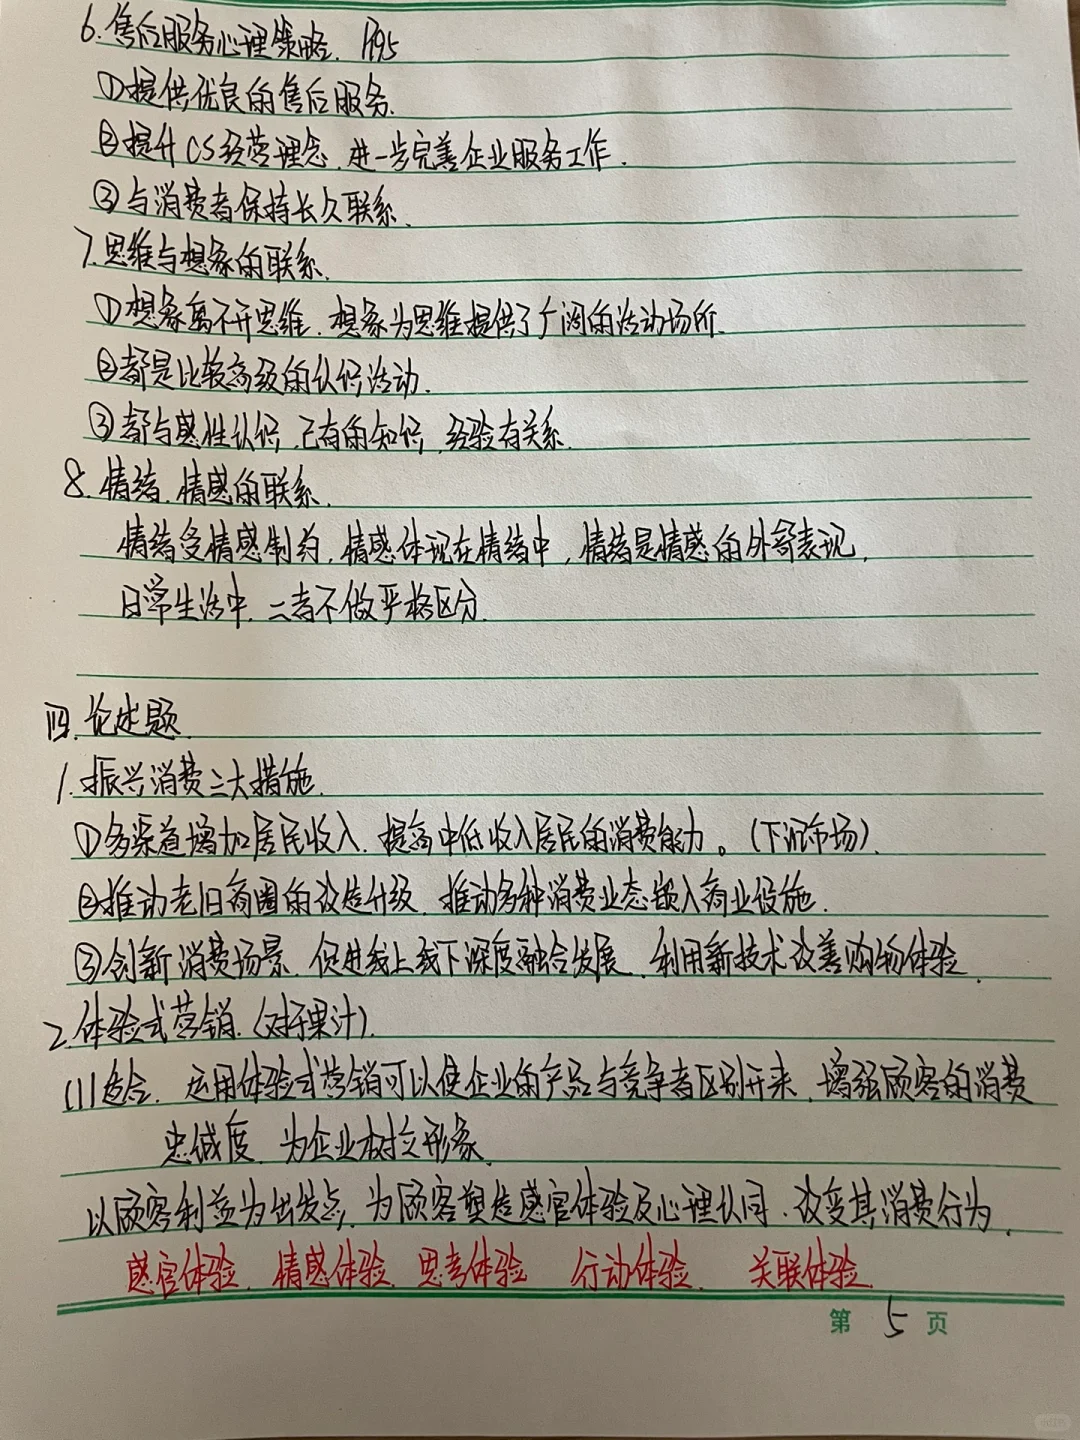 6.售后服务心理策略. P195
①提供优良的售后服务.
②提升CS经营理念,进一步完善企业服务工作.
③与消费者保持长久联系.
7.思维与想象的联系.
①想象离不开思维,想象为思维提供了广阔的活动场所.
②都是比较高级的认识活动.
③都与感性认识,己有的知识,经验有关系.
8.情绪.情感的联系.
情绪受情感制约,情感体现在情绪中,情绪是情感的外部表现,
日常生活中,二者不做严格区分.
四.论述题
1.振兴消费三大措施.
①多渠道增加居民收入,提高中低收入居民的消费能力。(下沉市场).
②推动老旧商圈的改造升级,推动多种消费业态嵌入商业设施.
③创新消费场景,促进线上线下深度融合发展,利用新技术改善购物体验.
2.体验式营销.(对于果汁).
(1)适合.运用体验式营销可以使企业的产品与竞争者区别开来,增强顾客的消费
忠诚度,为企业树立形象.
以顾客利益为出发点,为顾客塑造感官体验及心理认同,改变其消费行为.
感官体验.情感体验.思考体验 行动体验. 关联体验.
第 5 页
小红书